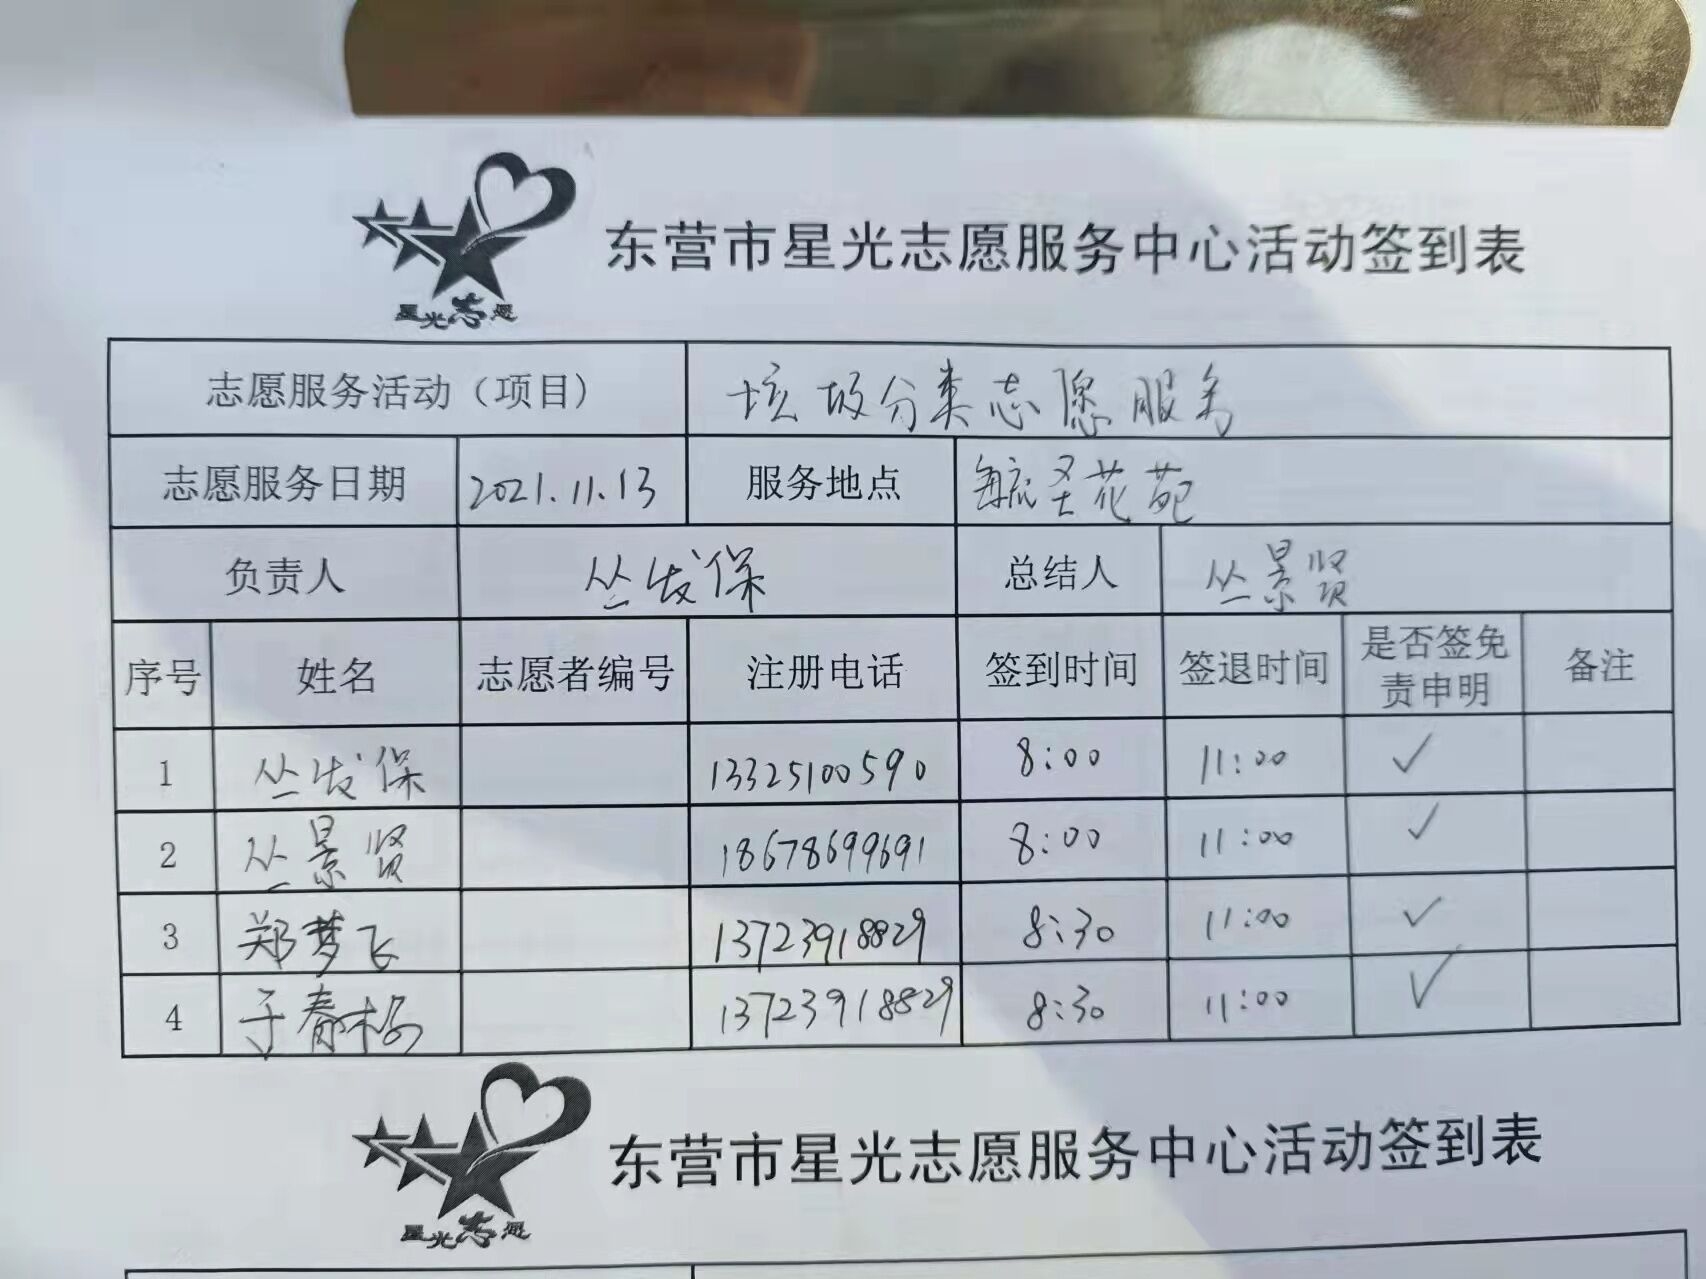 星光志愿
东营市星光志愿服务中心活动签到表
志愿服务活动（项目） 垃圾分类志愿服务
志愿服务日期 2021.11.13 服务地点 毓圣花苑
负责人 丛发保 总结人 丛景贤
序号 姓名 志愿者编号 注册电话 签到时间 签退时间 是否签免责申明 备注
1 丛发保 13325100590 8:00 11:00 ✓
2 丛景贤 18678699691 8:00 11:00 ✓
3 郑梦飞 13723918829 8:30 11:00 ✓
4 于春梅 13723918829 8:30 11:00 ✓
星光志愿
东营市星光志愿服务中心活动签到表